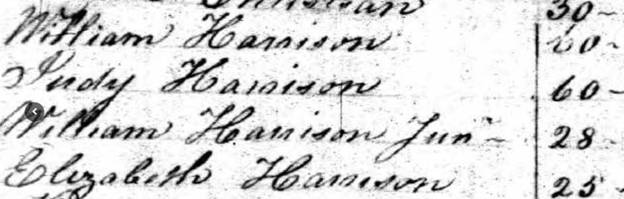 Christian 30-
William Harrison 60-
Judy Harrison 60-
William Harrison Junr - 28-
Elizabeth Harrison 25-